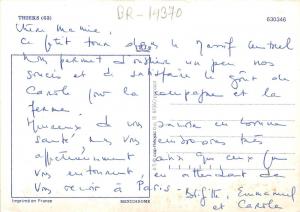 THIERS (63)
BR-14370
630346
Chère Mamie,
Ce petit tour dans le Massif Central
Nous permet d'oublier un peu nos
soucis et de satisfaire le goût de
Carola pour la campagne et la
ferme.
Heureux de vous savoir en bonne
santé, nous vous embrassons très
affectueusement ainsi que ceux
en attendant de
vous revoir à Paris -
Brigitte, Emmanuel
et Carola
Imprimé en France
MEXICHROME